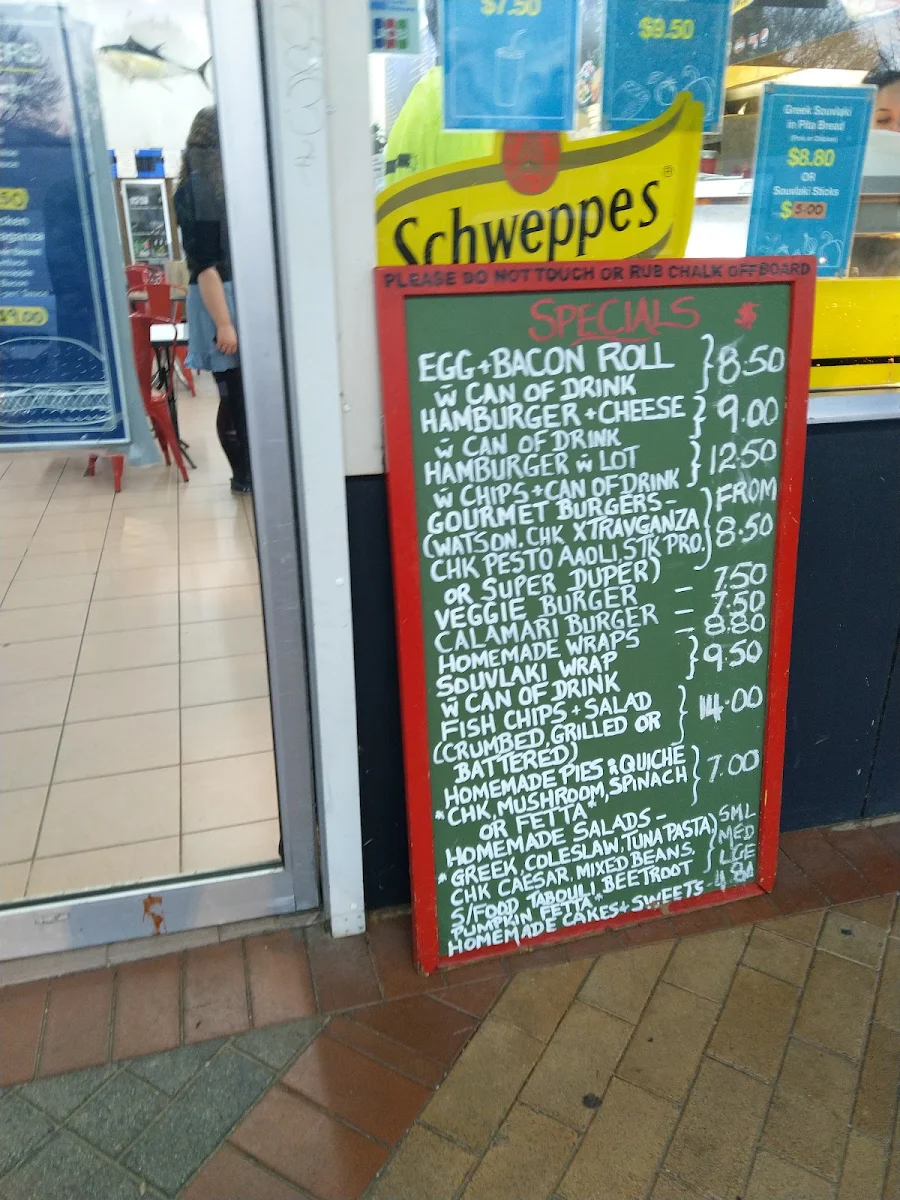 $7.50
$9.50
Greek Souvlaki
in Pita Bread
$8.80
OR
Souvlaki Sticks
$5.00
Schweppes
PLEASE DO NOT TOUCH OR RUB CHALK OFF BOARD
SPECIALS $
EGG + BACON ROLL 8.50
W CAN OF DRINK
HAMBURGER + CHEESE 9.00
W CAN OF DRINK
HAMBURGER W LOT 12.50
W CHIPS + CAN OF DRINK
GOURMET BURGERS - FROM
(WATSON. CHK XTRAVGANZA 8.50
CHK PESTO AAOLI, STK PRO.
OR SUPER DUPER)
VEGGIE BURGER - 7.50
CALAMARI BURGER - 7.50
HOMEMADE WRAPS - 8.80
SOUVLAKI WRAP 9.50
W CAN OF DRINK
FISH CHIPS + SALAD 14.00
(CRUMBED, GRILLED OR
BATTERED)
HOMEMADE PIES & QUICHE 7.00
*CHK, MUSHROOM, SPINACH
OR FETTA*
HOMEMADE SALADS - SML
*GREEK, COLESLAW, TUNA PASTA) MED
CHK CAESAR, MIXED BEANS LGE
S/FOOD, TABOULI BEETROOT
PUMPKIN FETTA*
HOMEMADE CAKES + SWEETS -
9.00